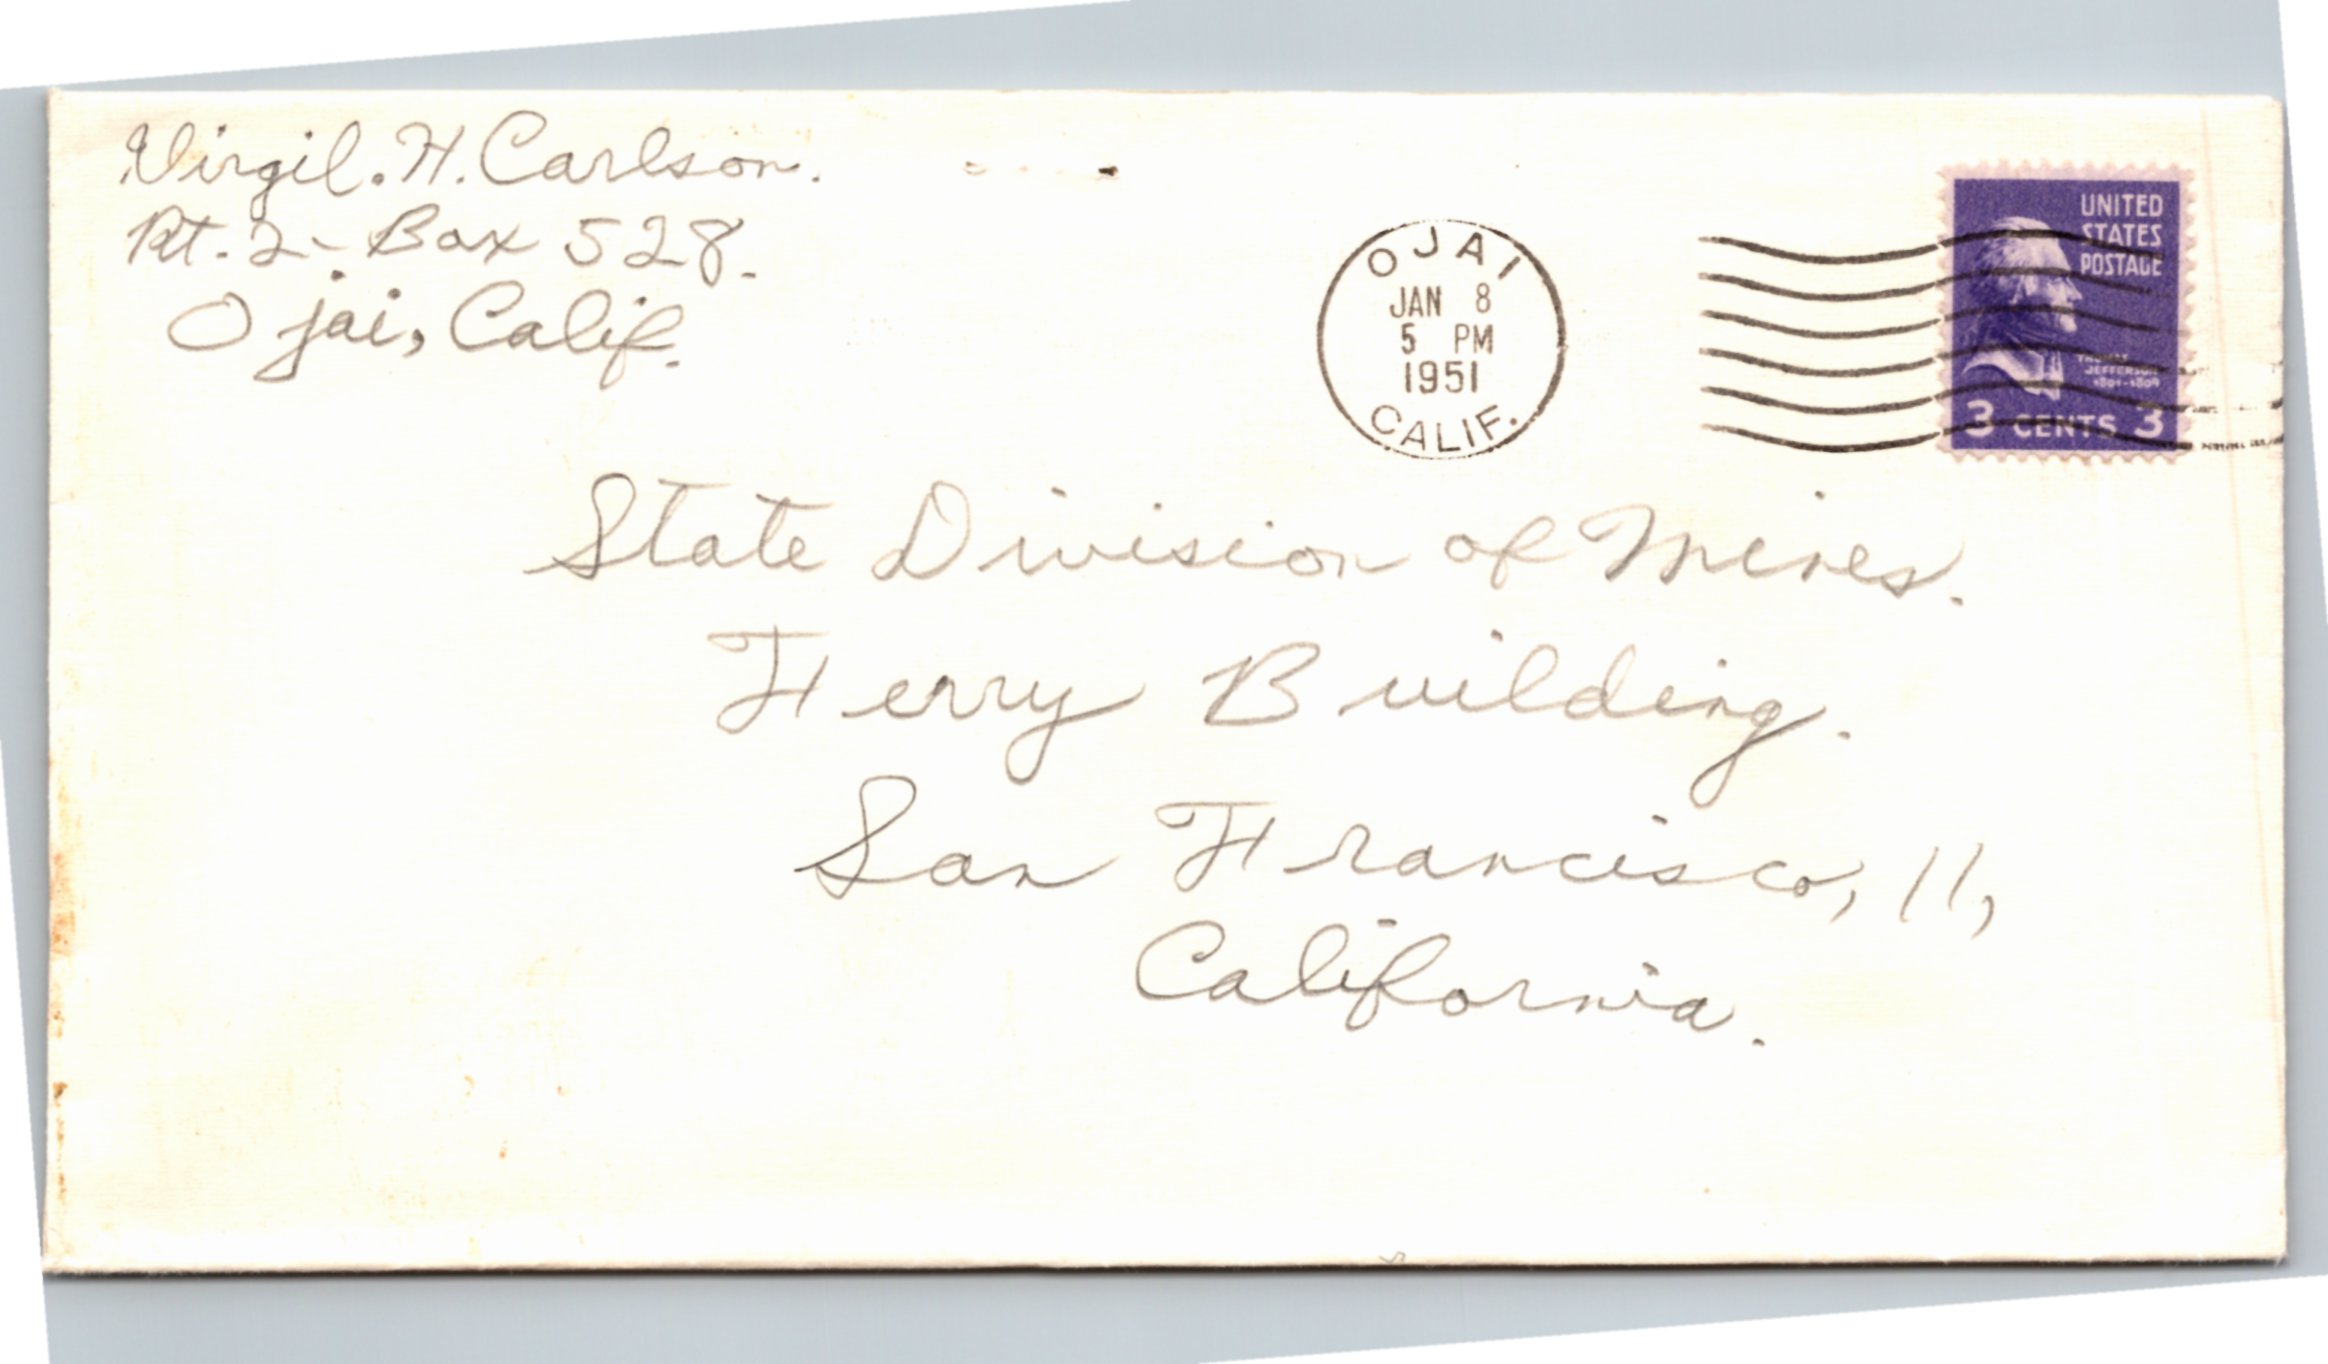 Virgil. H. Carlson.
Rt. 2 - Box 528.
Ojai, Calif.
OJAI
JAN 8
5 PM
1951
CALIF.
UNITED
STATES
POSTAGE
THOMAS
JEFFERSON
1801-1809
3 CENTS 3
State Division of Mines.
Ferry Building.
San Francisco, 11,
California.